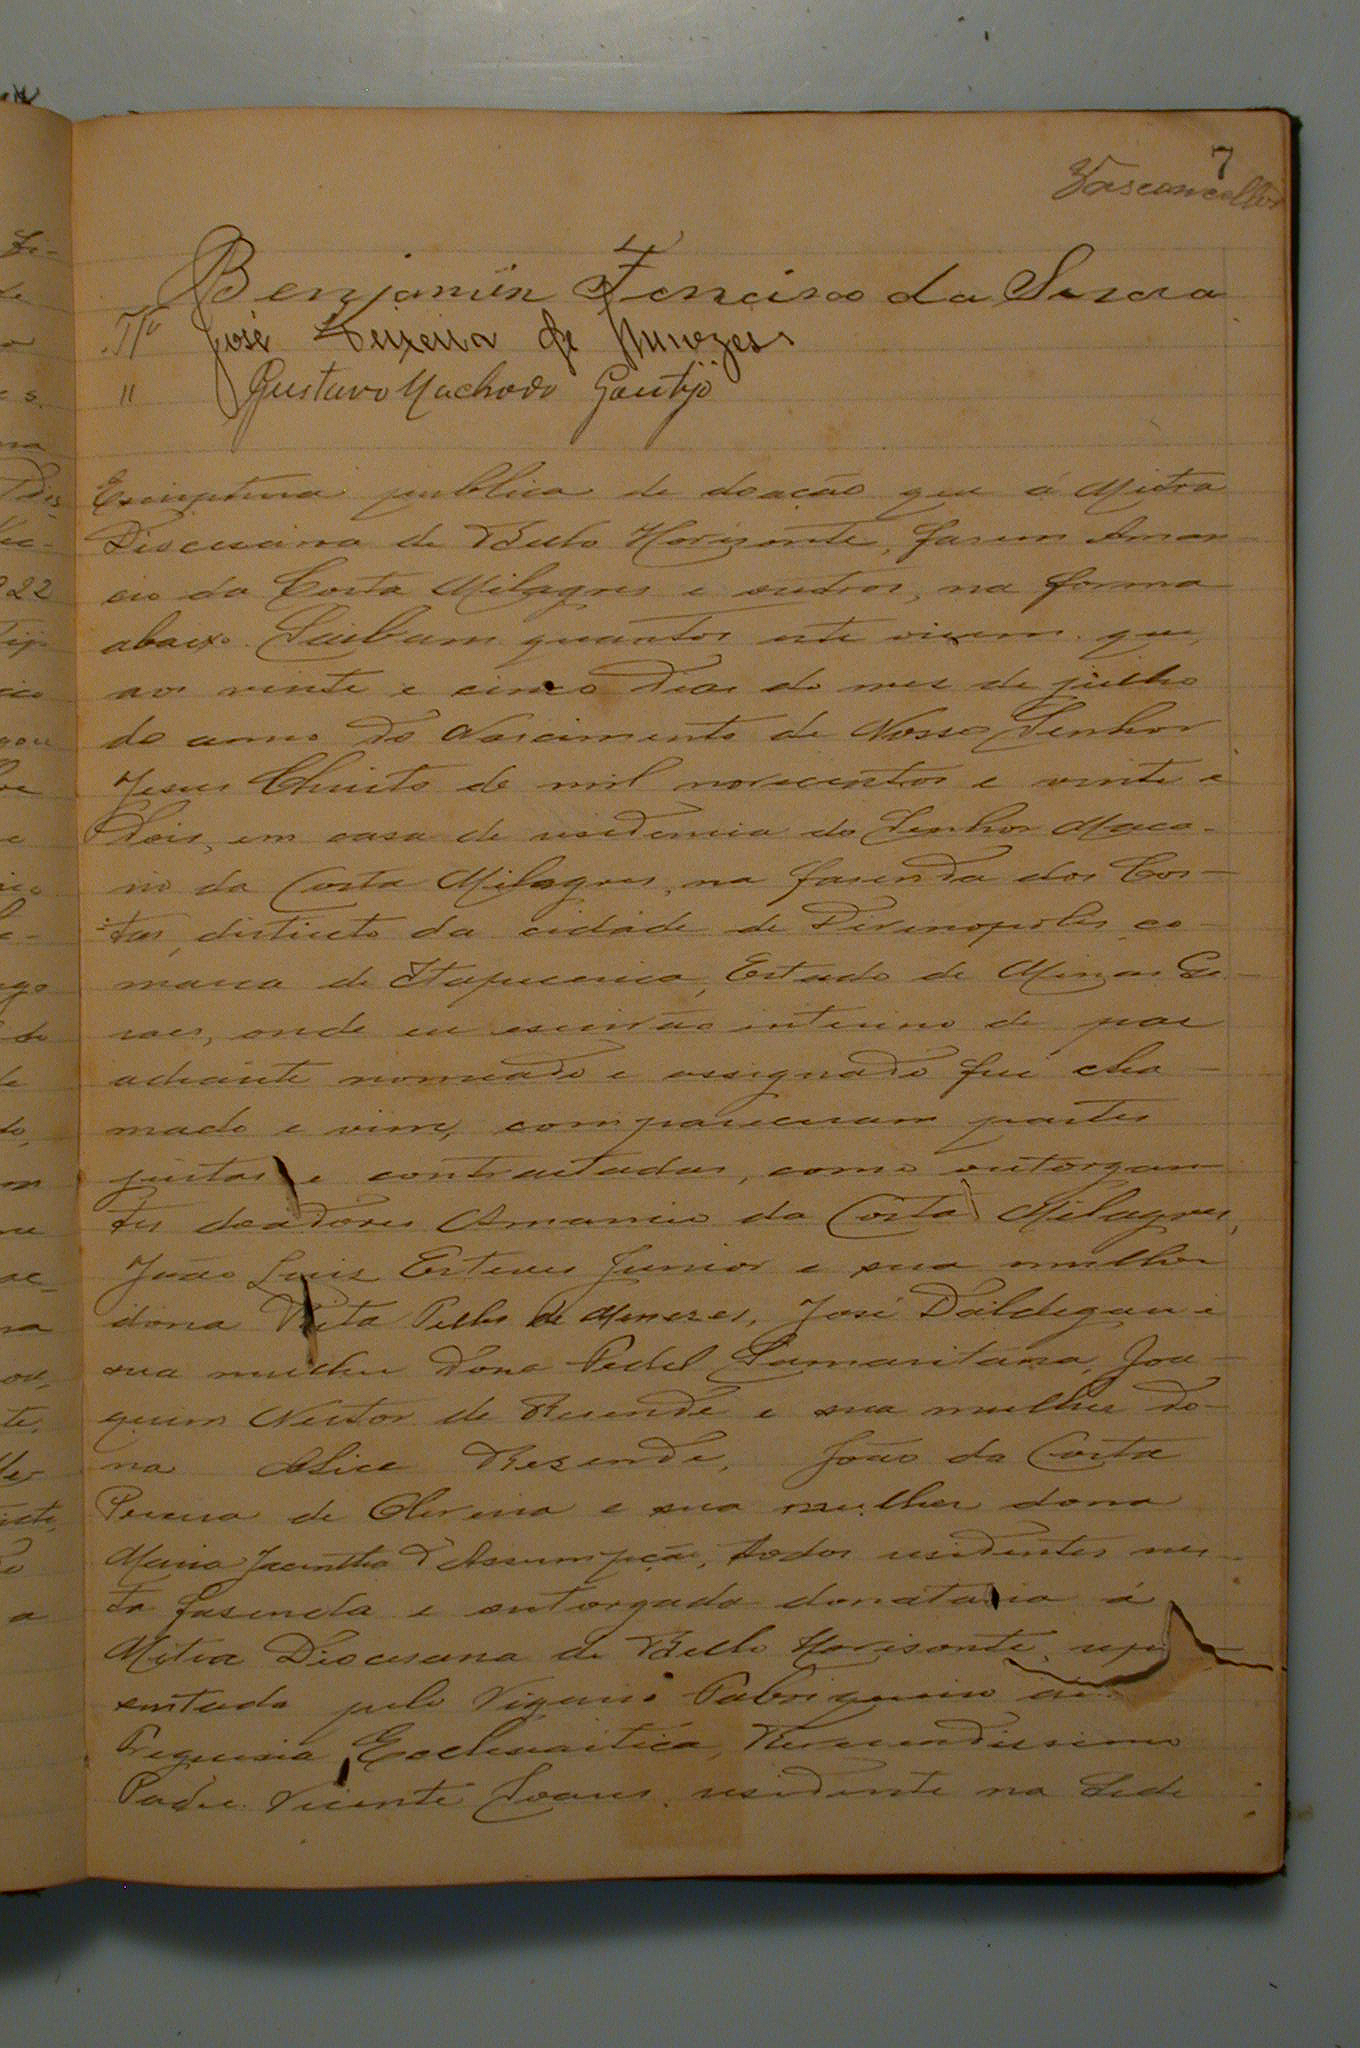 7
Vasconcellos
Benjamin da
Tª José Teixeira de
" Gustavo Machado Gontijo
Escriptura publica de doação que á Mitra
Diocesana de Bello Horizonte, fasem Aman-
cio da Costa Milagres e outros, na forma
abaixo. Saibam quantos este virem que,
aos vinte e cinco dias do mes de julho
do anno do Nascimento de Nosso Senhor
Jesus Christo de mil novecentos e vinte e
dois, em casa de residencia do Senhor
da Costa Milagres, na fasenda dos Cos-
tas, districto da cidade de Divinopolis, co-
marca de Itapecerica, Estado de Minas Ge-
raes, onde eu escrivão interino de paz
adiante nomeado e assignado fui cha-
mado e vim, compareceram partes
justas e contractadas, como outorgan-
tes doadores Amancio da Costa Milagres,
João Luiz Esteves Junior e sua mulher
dona Rita Telles de Meneses, José Daldegan e
sua mulher dona Samaritana, Joa-
quim Nestor de Resende e sua mulher do-
na Alice Rezende, João da Costa
Pereira de Oliveira e sua mulher dona
Maria Jacintha d'Assumpção, todos residentes nes-
ta fasenda e outorgada donataria á
Mitra Diocesana de Bello Horisonte, repre
sentada pelo Vigario Fabriqueiro
Freguesia Ecclesiastica, Reverendissimo
Padre Vicente Soares, residente na Sede